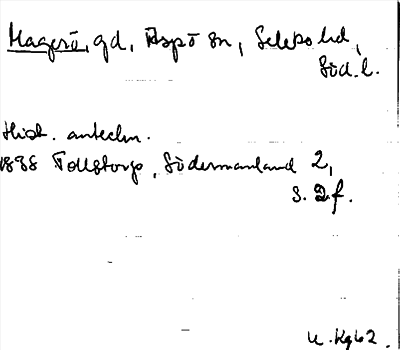 Magerö, gd, Aspö sn, Selebo hd,
Söd. l.
Hist. anteckn.
1838 Tollstorp, Södermanland 2,
s. 2 f.
U. Kg 62.